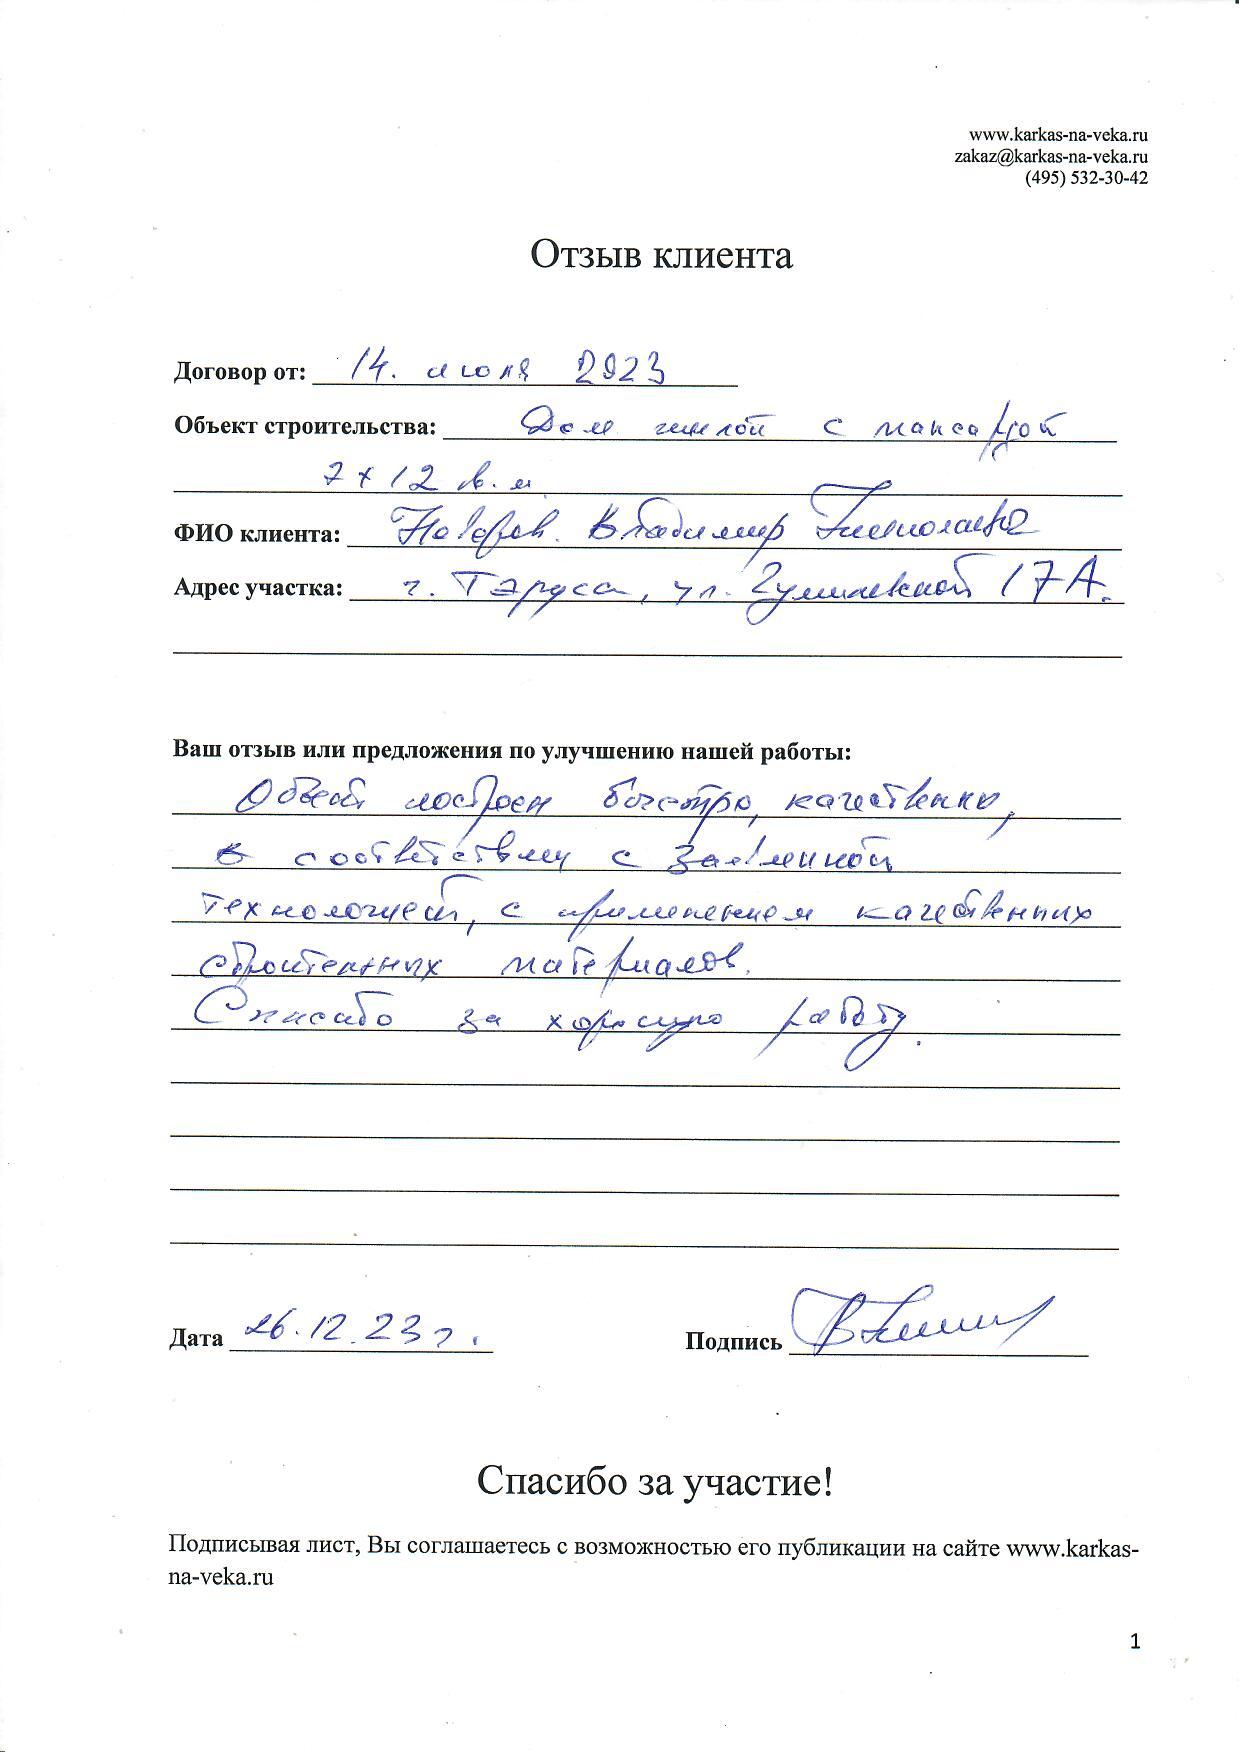 www.karkas-na-veka.ru
zakaz@karkas-na-veka.ru
(495) 532-30-42
Отзыв клиента
Договор от: 14. июля 2023
Объект строительства: Дом жилой с мансардой
7 х 12 кв. м.
ФИО клиента: Владимир
Адрес участка: г. Таруса, ул. 17А.
Ваш отзыв или предложения по улучшению нашей работы:
Объект построен быстро, качественно,
в соответствии с заявленной
технологией, с применением качественных
строительных материалов.
Спасибо за хорошую работу.
Дата 26.12.23 г. Подпись
Спасибо за участие!
Подписывая лист, Вы соглашаетесь с возможностью его публикации на сайте www.karkas-
na-veka.ru
1